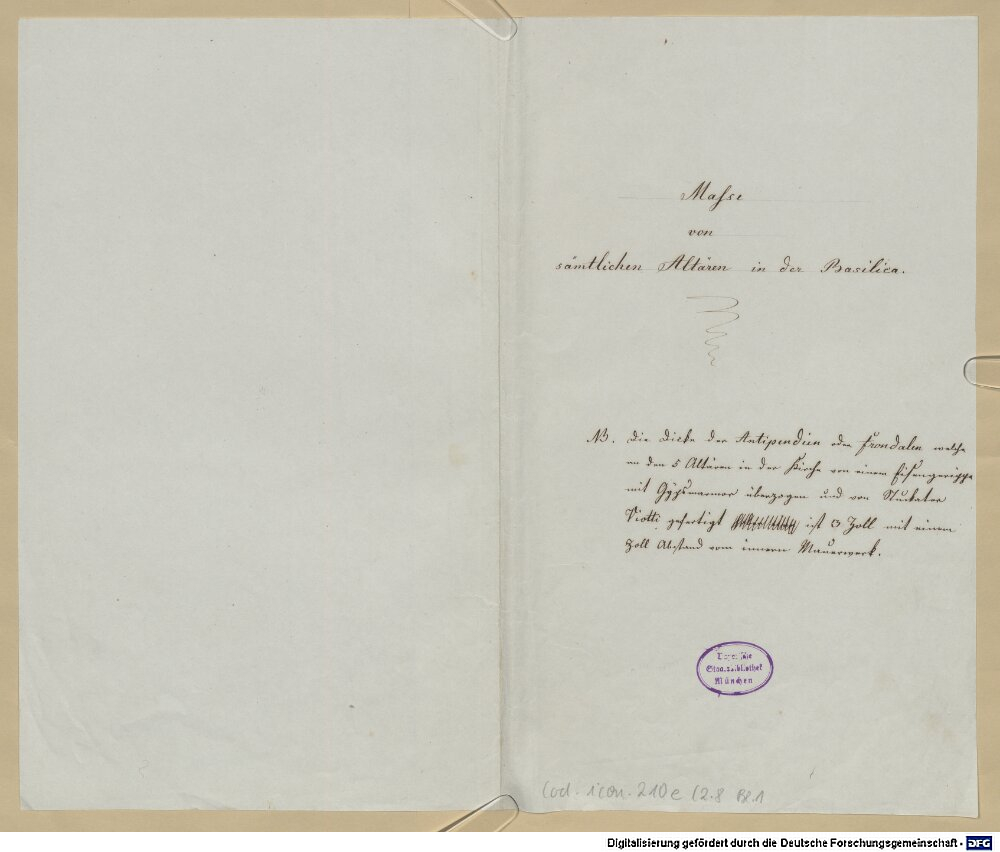 Maſse
von
sämtlichen Altären in der Basilica.
NB. Die Dicke der Antipendien oder Frondalen welche
an den 5 Altären in der Kirche von einem Eisengerippe
mit Gypsmarmor überzogen und von Stuckator
Viotti gefertigt ist 3 Zoll mit einem
Zoll Abstand vom innern Mauerwerk.
Bayerische
Staatsbibliothek
München
Cod. icon. 210e (2.8 Bl.1
Digitalisierung gefördert durch die Deutsche Forschungsgemeinschaft - DFG